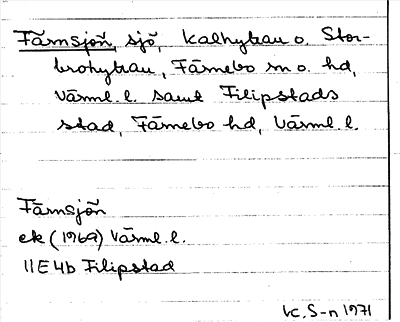 Färnsjön, sjö, Kalhyttan o. Stor-
brohyttan, Färnebo sn o. hd,
Värml. l. samt Filipstads
stad, Färnebo hd, Värml. l.
Färnsjön
ek (1969) Värml. l.
11E4b Filipstad
k. S-n 1971